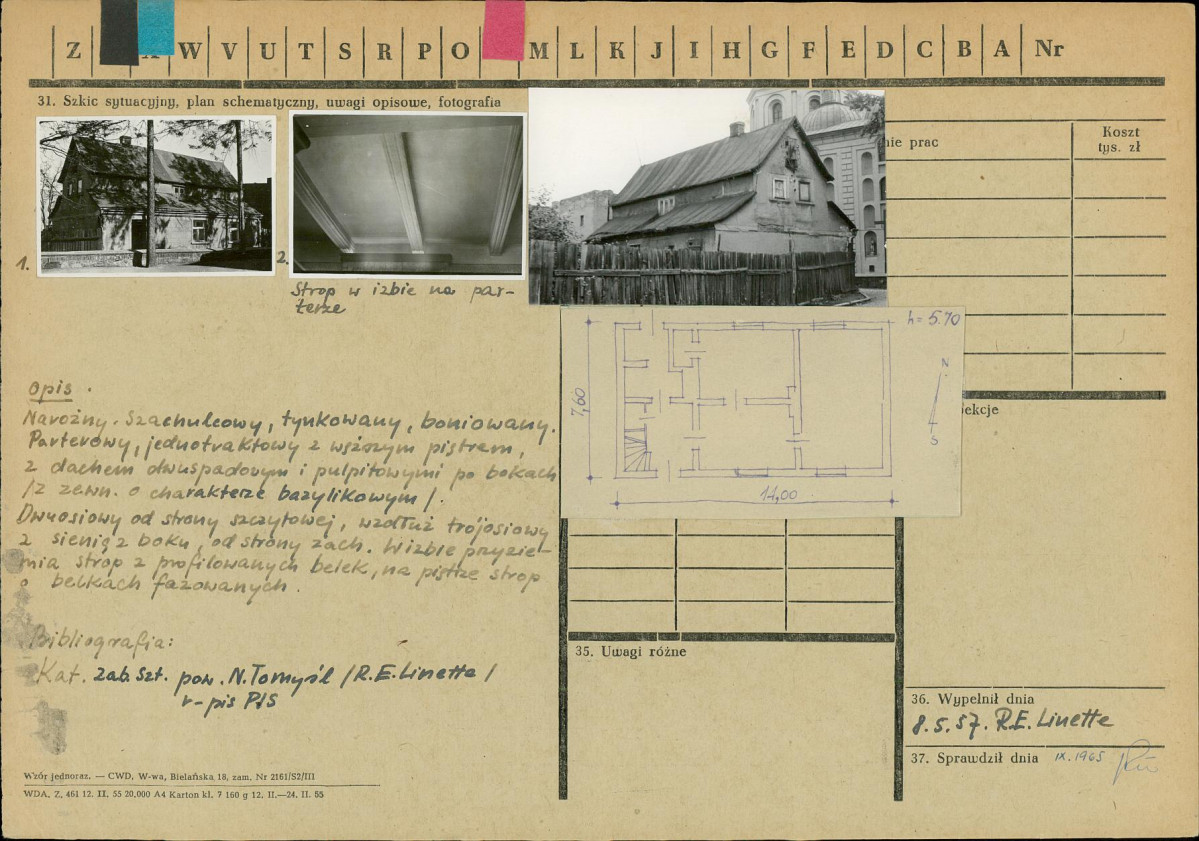 Z W V U T S R P O M L K J I H G F E D C B A Nr
31. Szkic sytuacyjny, plan schematyczny, uwagi opisowe, fotografia
nie prac
Koszt
tys. zł
1.
2.
Strop w izbie na par-
terze
h = 5.70
7,60
N
S
14,00
ekcje
Opis.
Narożny. Szachulcowy, tynkowany, boniowany.
Parterowy, jednotraktowy z węższym piętrem,
z dachem dwuspadowym i pulpitowymi po bokach
/z zewn. o charakterze bazylikowym/.
Dwuosiowy od strony szczytowej, wzdłuż trójosiowy
z sienią z boku, od strony zach. W izbie przyzie-
mia strop z profilowanych belek, na piętrze strop
o belkach fazowanych.
Bibliografia:
Kat. Zab. Szt. pow. N. Tomyśl /R.E. Linette/
r-pis PIS
35. Uwagi różne
36. Wypełnił dnia
8.5.57. R.E. Linette
37. Sprawdził dnia IX.1965
Wzór jednoraz. — CWD, W-wa, Bielańska 18, zam. Nr 2161/S2/III
WDA. Z. 461 12. II. 55 20.000 A4 Karton kl. 7 160 g 12. II.—24. II. 55